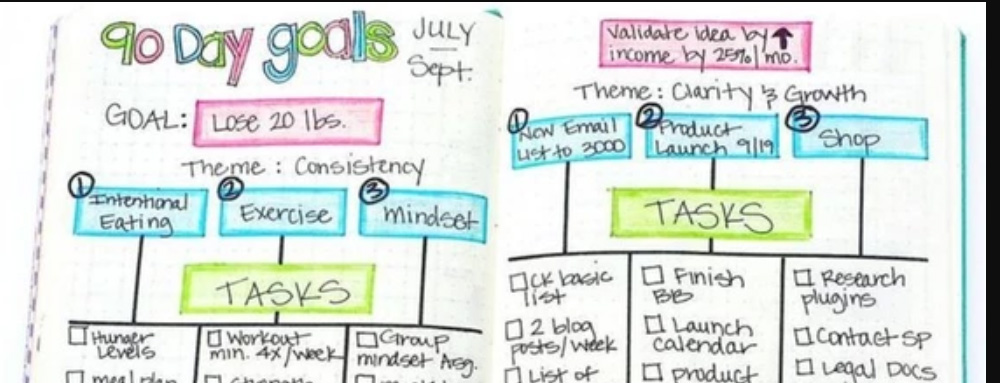 90 Day goals
JULY
Sept.
GOAL:
Lose 20 lbs.
Theme: Consistency
1
Intentional
Eating
2
Exercise
3
Mindset
TASKS
Hunger
Levels
meal plan
Workout
min. 4x/week
Group
mindset Asg.
Validate idea by ↑
income by 25%/mo.
Theme: Clarity & Growth
1
Now Email
List to 3000
2
Product
Launch 9/19
3
Shop
TASKS
CK basic
list
2 blog
posts/week
List of
Finish
BB
Launch
calendar
product
Research
plugins
Contact SP
Legal Docs